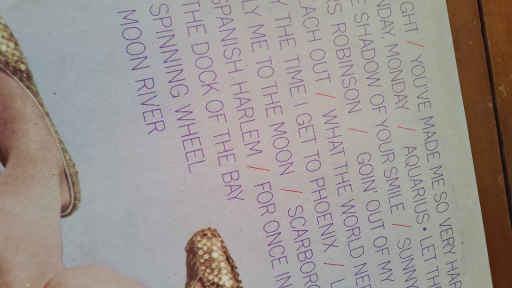 GHT / YOU'VE MADE ME SO VERY HAP
NDAY, MONDAY / AQUARIUS • LET TH
E SHADOW OF YOUR SMILE / SUNNY
S ROBINSON / GOIN' OUT OF MY
EACH OUT / WHAT THE WORLD NEE
Y THE TIME I GET TO PHOENIX / L
LY ME TO THE MOON / SCARBORO
SPANISH HARLEM / FOR ONCE IN
THE DOCK OF THE BAY
SPINNING WHEEL
MOON RIVER